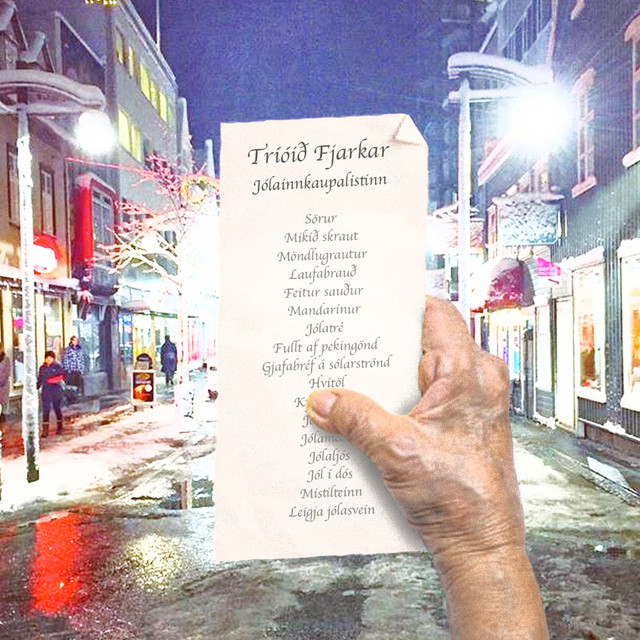 Tríóið Fjarkar
Jólainnkaupalistinn
Sörur
Mikið skraut
Möndlugrautur
Laufabrauð
Feitur sauður
Mandarínur
Jólatré
Fullt af pekingönd
Gjafabréf á sólarströnd
Hvítöl
Jólaljós
Jól í dós
Mistilteinn
Leigja jólasvein